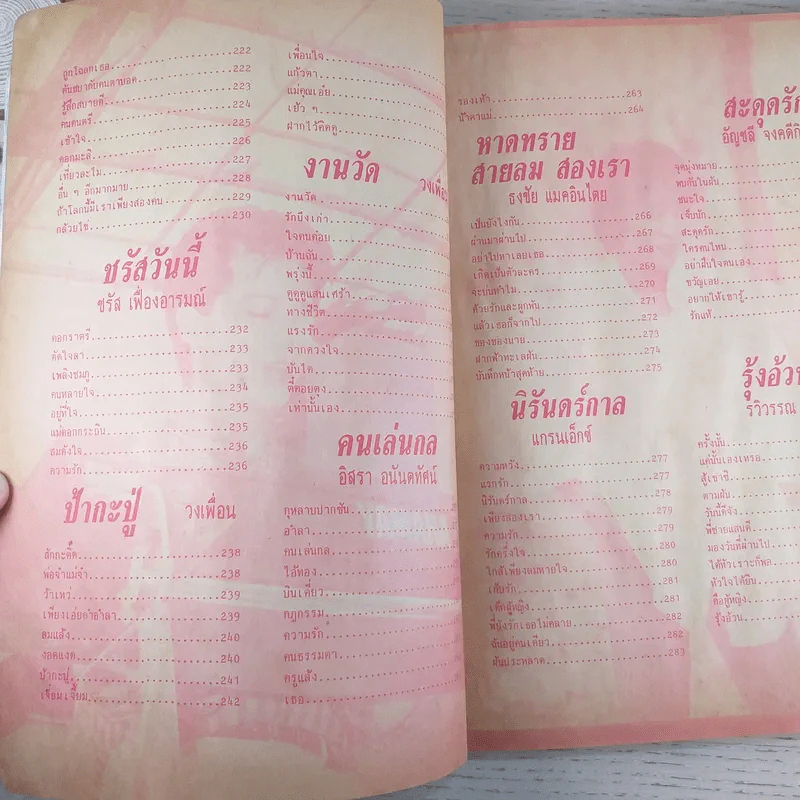 ถูกใจละเธอ 222
ต้นชบากับคนตาบอด 222
รู้สึกสบายดี 223
คนดนตรี 224
เข้าใจ 225
ดอกมะลิ 226
เที่ยวละไม 227
อื่น ๆ อีกมากมาย 228
ถ้าโลกนี้มีเราเพียงสองคน 229
กล้วยไข่ 230
ชรัสวันนี้
ชรัส เฟื่องอารมณ์
ดอกราตรี 232
ตัดใจลา 233
เพลิงชมภู 233
คนหลายใจ 234
อยู่ที่ใจ 235
แม่ดอกกระถิน 235
สมดังใจ 236
ความรัก 236
ป้ากะปู่ วงเพื่อน
ฮักกะตึ๊ด 238
พ่อจ๋าแม่จ๋า 238
รำเหว่ 239
เพียงเอ่ยคำอำลา 239
ลมแล้ง 240
งอดแงด 240
ป้ากะปู่ 241
เจี๋ยมเจี้ยม 242
เพื่อนใจ
แก้วตา
แม่คุณเอ๋ย
เฮ้ว ๆ
ฝากไว้คิดดู
งานวัด วงเพื่อน
งานวัด
รักบึงเก่า
ใจคนคอย
บ้านฉัน
พรุ่งนี้
ดูดูดูแสนเศร้า
ทางชีวิต
แรงรัก
จากดวงใจ
บันได
ตี๋ตอยตง
เท่านั้นเอง
คนเล่นกล
อิสรา อนันตทัศน์
กุหลาบปากซัน
อำลา
คนเล่นกล
ไอ้ทอง
บินเดี่ยว
กฎกรรม
ความรัก
คนธรรมดา
ครูแล้ง
เธอ
รองเท้า 263
น้ำตาแม่ 264
หาดทราย
สายลม สองเรา
ธงชัย แมคอินไตย
เป็นยังไงกัน 266
ผ่านมาผ่านไป 267
อย่าไปหาเลยเธอ 268
เกิดเป็นตัวละคร 269
จะบ่นทำไม 270
ด้วยรักและผูกพัน 271
แล้วเธอก็จากไป 272
ของของนาย 273
ฝากฟ้าทะเลฝัน 274
บันทึกหน้าสุดท้าย 275
นิรันดร์กาล
แกรนเอ็กซ์
ความหวัง 277
แรกรัก 277
นิรันดร์กาล 278
เพียงสองเรา 279
ความรัก 279
รักครึ่งใจ 280
ใกล้เพียงลมหายใจ 280
เก็บรัก 281
เด็กผู้หญิง 281
พี่ยังรักเธอไม่คลาย 282
ฉันอยู่คนเดียว 282
มันประหลาด 283
สะดุดรัก
อัญชลี จงคดีกิ
จุดมุ่งหมาย
พบกันในฝัน
ชนะใจ
เจ็บนัก
สะดุดรัก
ใครคนไหน
อย่าฝืนใจตนเอง
ขวัญเอย
อยากให้เขารู้
รักแท้
รุ้งอ้วน
รวิวรรณ
ครั้งนั้น
แค่นั้นเองเหรอ
สู้เขาซิ
ตามฝัน
วันนี้ดีจัง
พี่ชายแสนดี
มองวันที่ผ่านไป
ได้หัวเราะก็พอ
หัวใจได้ยิน
คือผู้หญิง
รุ้งอ้วน